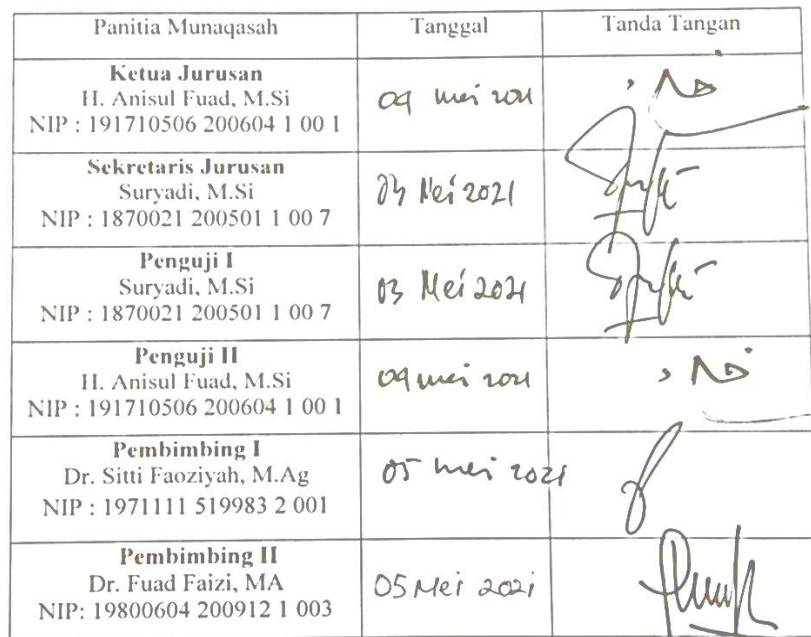 Panitia Munaqasah
Tanggal
Tanda Tangan
Ketua Jurusan
H. Anisul Fuad, M.Si
NIP : 191710506 200604 1 00 1
09 mei 2021
Sekretaris Jurusan
Suryadi, M.Si
NIP : 1870021 200501 1 00 7
Mei 2021
Penguji I
Suryadi, M.Si
NIP : 1870021 200501 1 00 7
03 Mei 2021
Penguji II
H. Anisul Fuad, M.Si
NIP : 191710506 200604 1 00 1
09 mei 2021
Pembimbing I
Dr. Sitti Faoziyah, M.Ag
NIP : 1971111 519983 2 001
05 mei 2021
Pembimbing II
Dr. Fuad Faizi, MA
NIP: 19800604 200912 1 003
05 Mei 2021